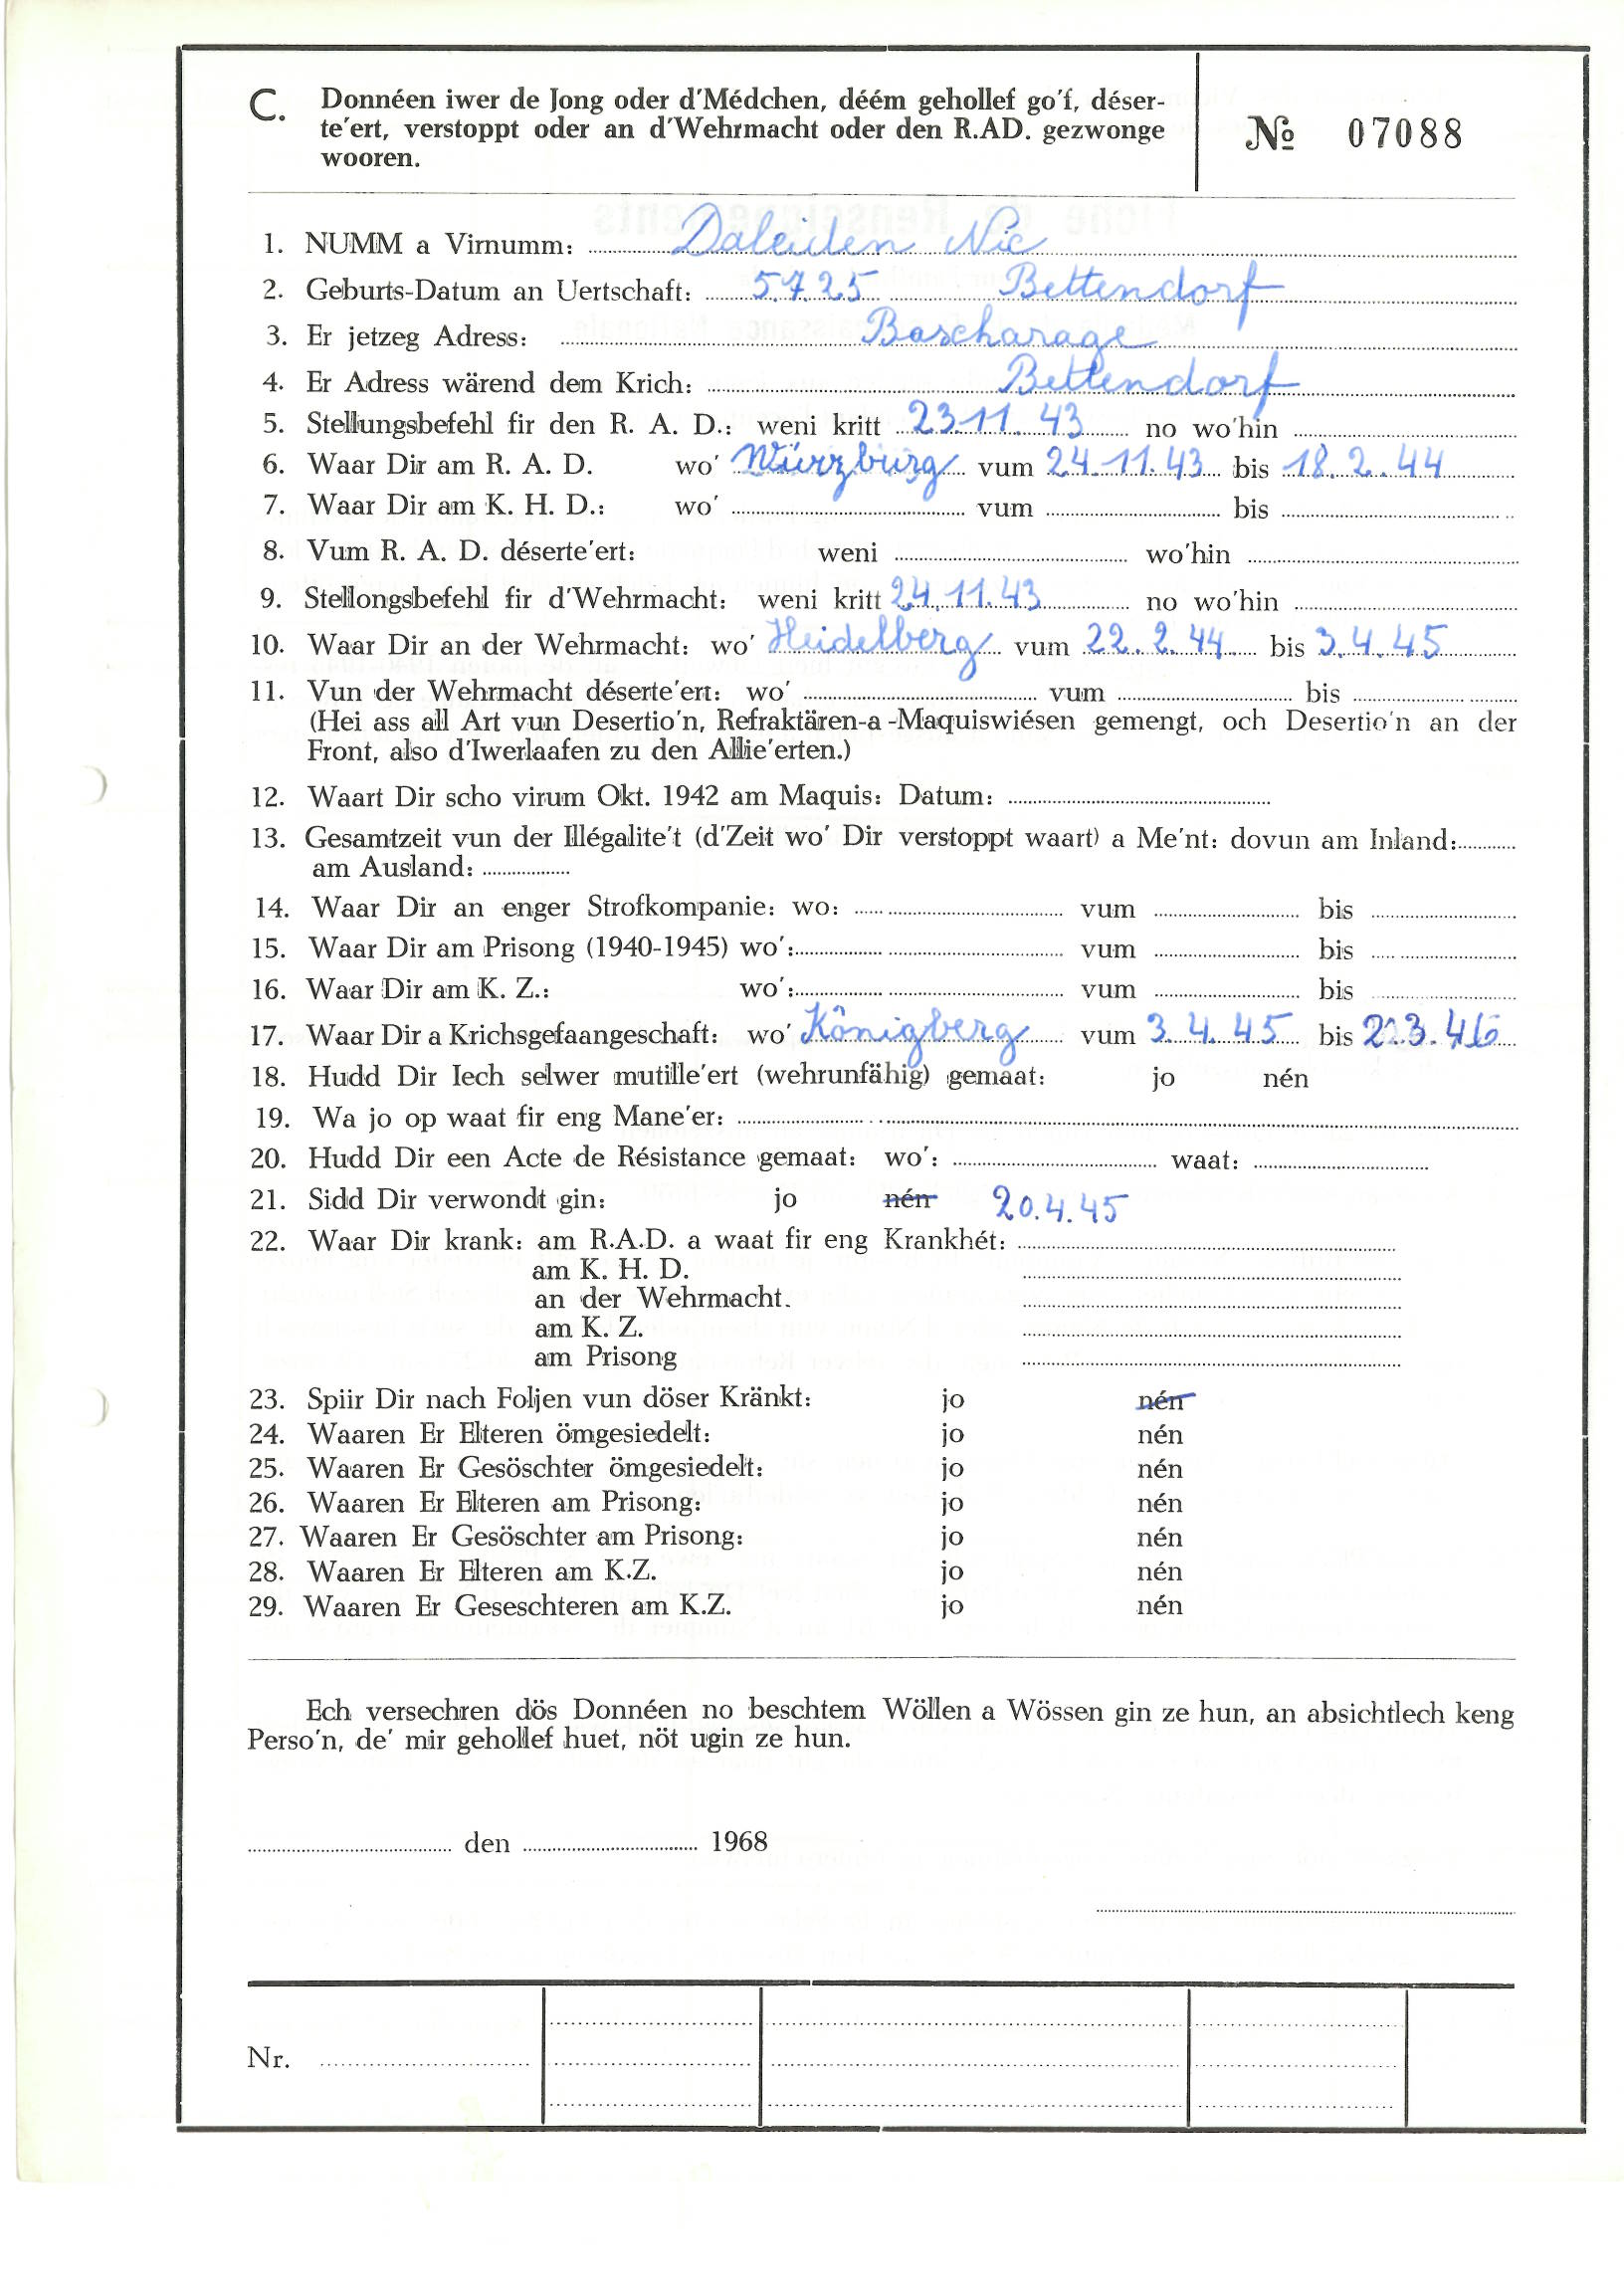 C. Donnéen iwer de Jong oder d'Médchen, déém gehollef go'f, déser-
te'ert, verstoppt oder an d'Wehrmacht oder den R.AD. gezwonge
wooren.
№ 07088
1. NUMM a Virnumm: Daleiden Nic
2. Geburts-Datum an Uertschaft: 5.7.25 Bettendorf
3. Er jetzeg Adress: Bascharage
4. Er Adress wärend dem Krich: Bettendorf
5. Stellungsbefehl fir den R. A. D.: weni kritt 23.11.43 no wo'hin
6. Waar Dir am R. A. D. wo' Würzburg vum 24.11.43 bis 18.2.44
7. Waar Dir am K. H. D.: wo' vum bis
8. Vum R. A. D. déserte'ert: weni wo'hin
9. Stellongsbefehl fir d'Wehrmacht: weni kritt 24.11.43 no wo'hin
10. Waar Dir an der Wehrmacht: wo' Heidelberg vum 22.2.44 bis 3.4.45
11. Vun der Wehrmacht déserte'ert: wo' vum bis
(Hei ass all Art vun Desertio'n, Refraktären-a-Maquiswiésen gemengt, och Desertio'n an der
Front, also d'Iwerlaafen zu den Allie'erten.)
12. Waart Dir scho virum Okt. 1942 am Maquis: Datum:
13. Gesamtzeit vun der Illégalite't (d'Zeit wo' Dir verstoppt waart) a Me'nt: dovun am Inland:
am Ausland:
14. Waar Dir an enger Strofkompanie: wo: vum bis
15. Waar Dir am Prisong (1940-1945) wo': vum bis
16. Waar Dir am K. Z.: wo': vum bis
17. Waar Dir a Krichsgefaangeschaft: wo' Königberg vum 3.4.45 bis 3.46
18. Hudd Dir Iech selwer mutille'ert (wehrunfähig) gemaat: jo nén
19. Wa jo op waat fir eng Mane'er:
20. Hudd Dir een Acte de Résistance gemaat: wo': waat:
21. Sidd Dir verwondt gin: jo nén 20.4.45
22. Waar Dir krank: am R.A.D. a waat fir eng Krankhét:
am K. H. D.
an der Wehrmacht.
am K. Z.
am Prisong
23. Spiir Dir nach Foljen vun döser Kränkt: jo nén
24. Waaren Er Elteren ömgesiedelt: jo nén
25. Waaren Er Gesöschter ömgesiedelt: jo nén
26. Waaren Er Elteren am Prisong: jo nén
27. Waaren Er Gesöschter am Prisong: jo nén
28. Waaren Er Elteren am K.Z. jo nén
29. Waaren Er Geseschteren am K.Z. jo nén
Ech versechren dös Donnéen no beschtem Wöllen a Wössen gin ze hun, an absichtlech keng
Perso'n, de' mir gehollef huet, nöt ugin ze hun.
den 1968
Nr.